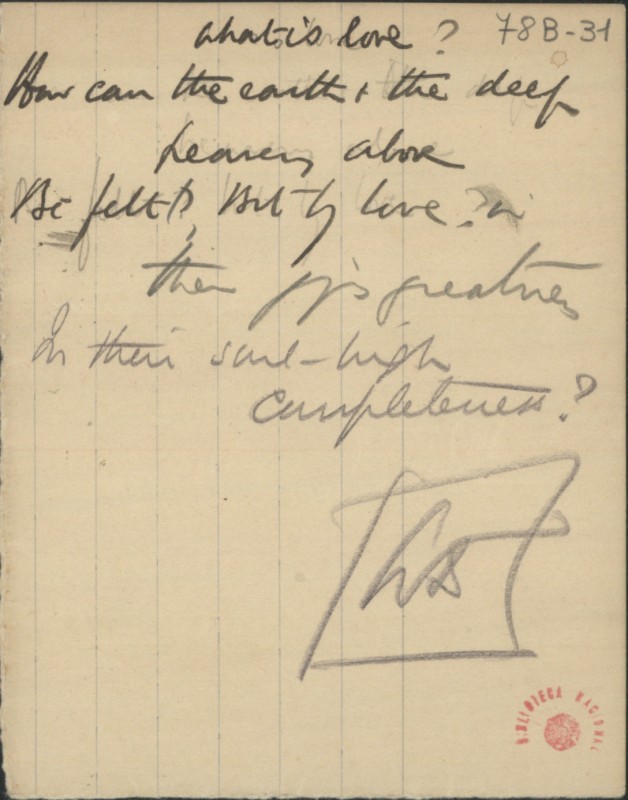 what is love ? 78B-31
How can the earth & the deep
heavens above
Be felt? But by love? in
their joy's greatness
In their soul-high
completeness?
BIBLIOTECA NACIONAL